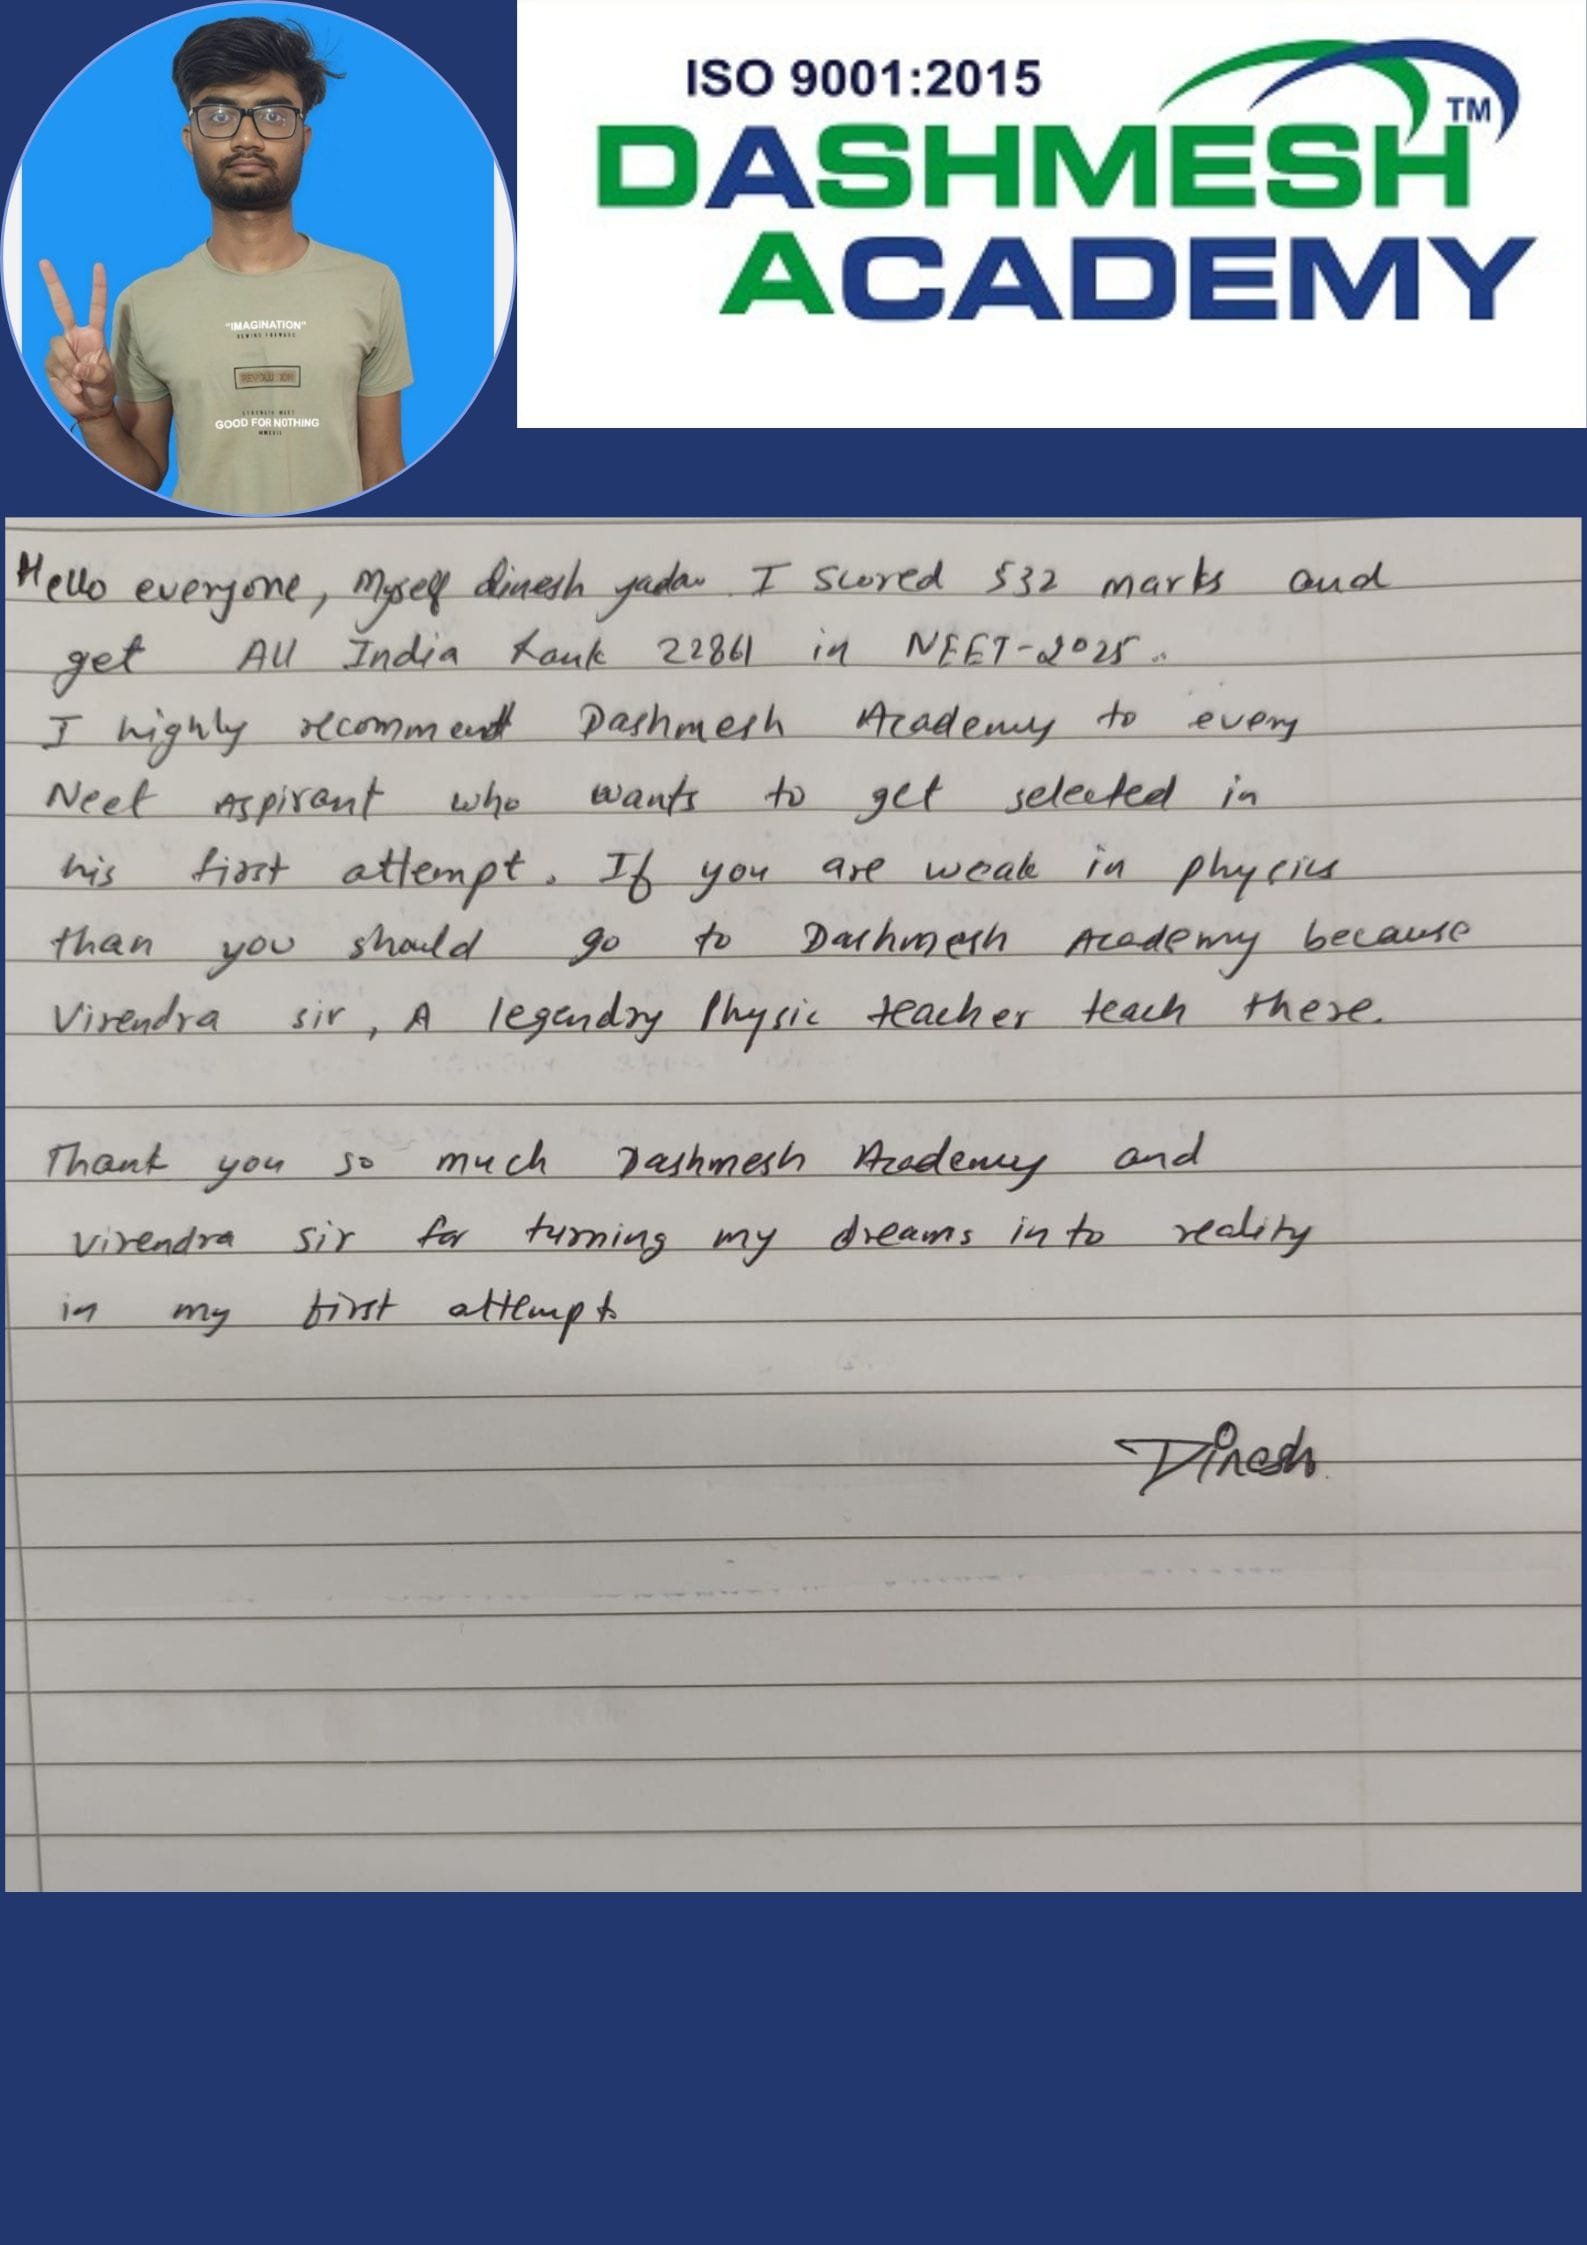 ISO 9001:2015
DASHMESH TM
ACADEMY
"IMAGINATION"
GOOD FOR NOTHING
Hello everyone, Myself dinesh yadav. I scored 532 marks and
get All India Rank 22861 in NEET-2025.
I highly recommend Dashmesh Academy to every
Neet Aspirant who wants to get selected in
his first attempt. If you are weak in physics
than you should go to Dashmesh Academy because
Virendra sir, A legendry Physic teacher teach there.
Thank you so much Dashmesh Academy and
Virendra sir for turning my dreams in to reality
in my first attempt.
Dinesh